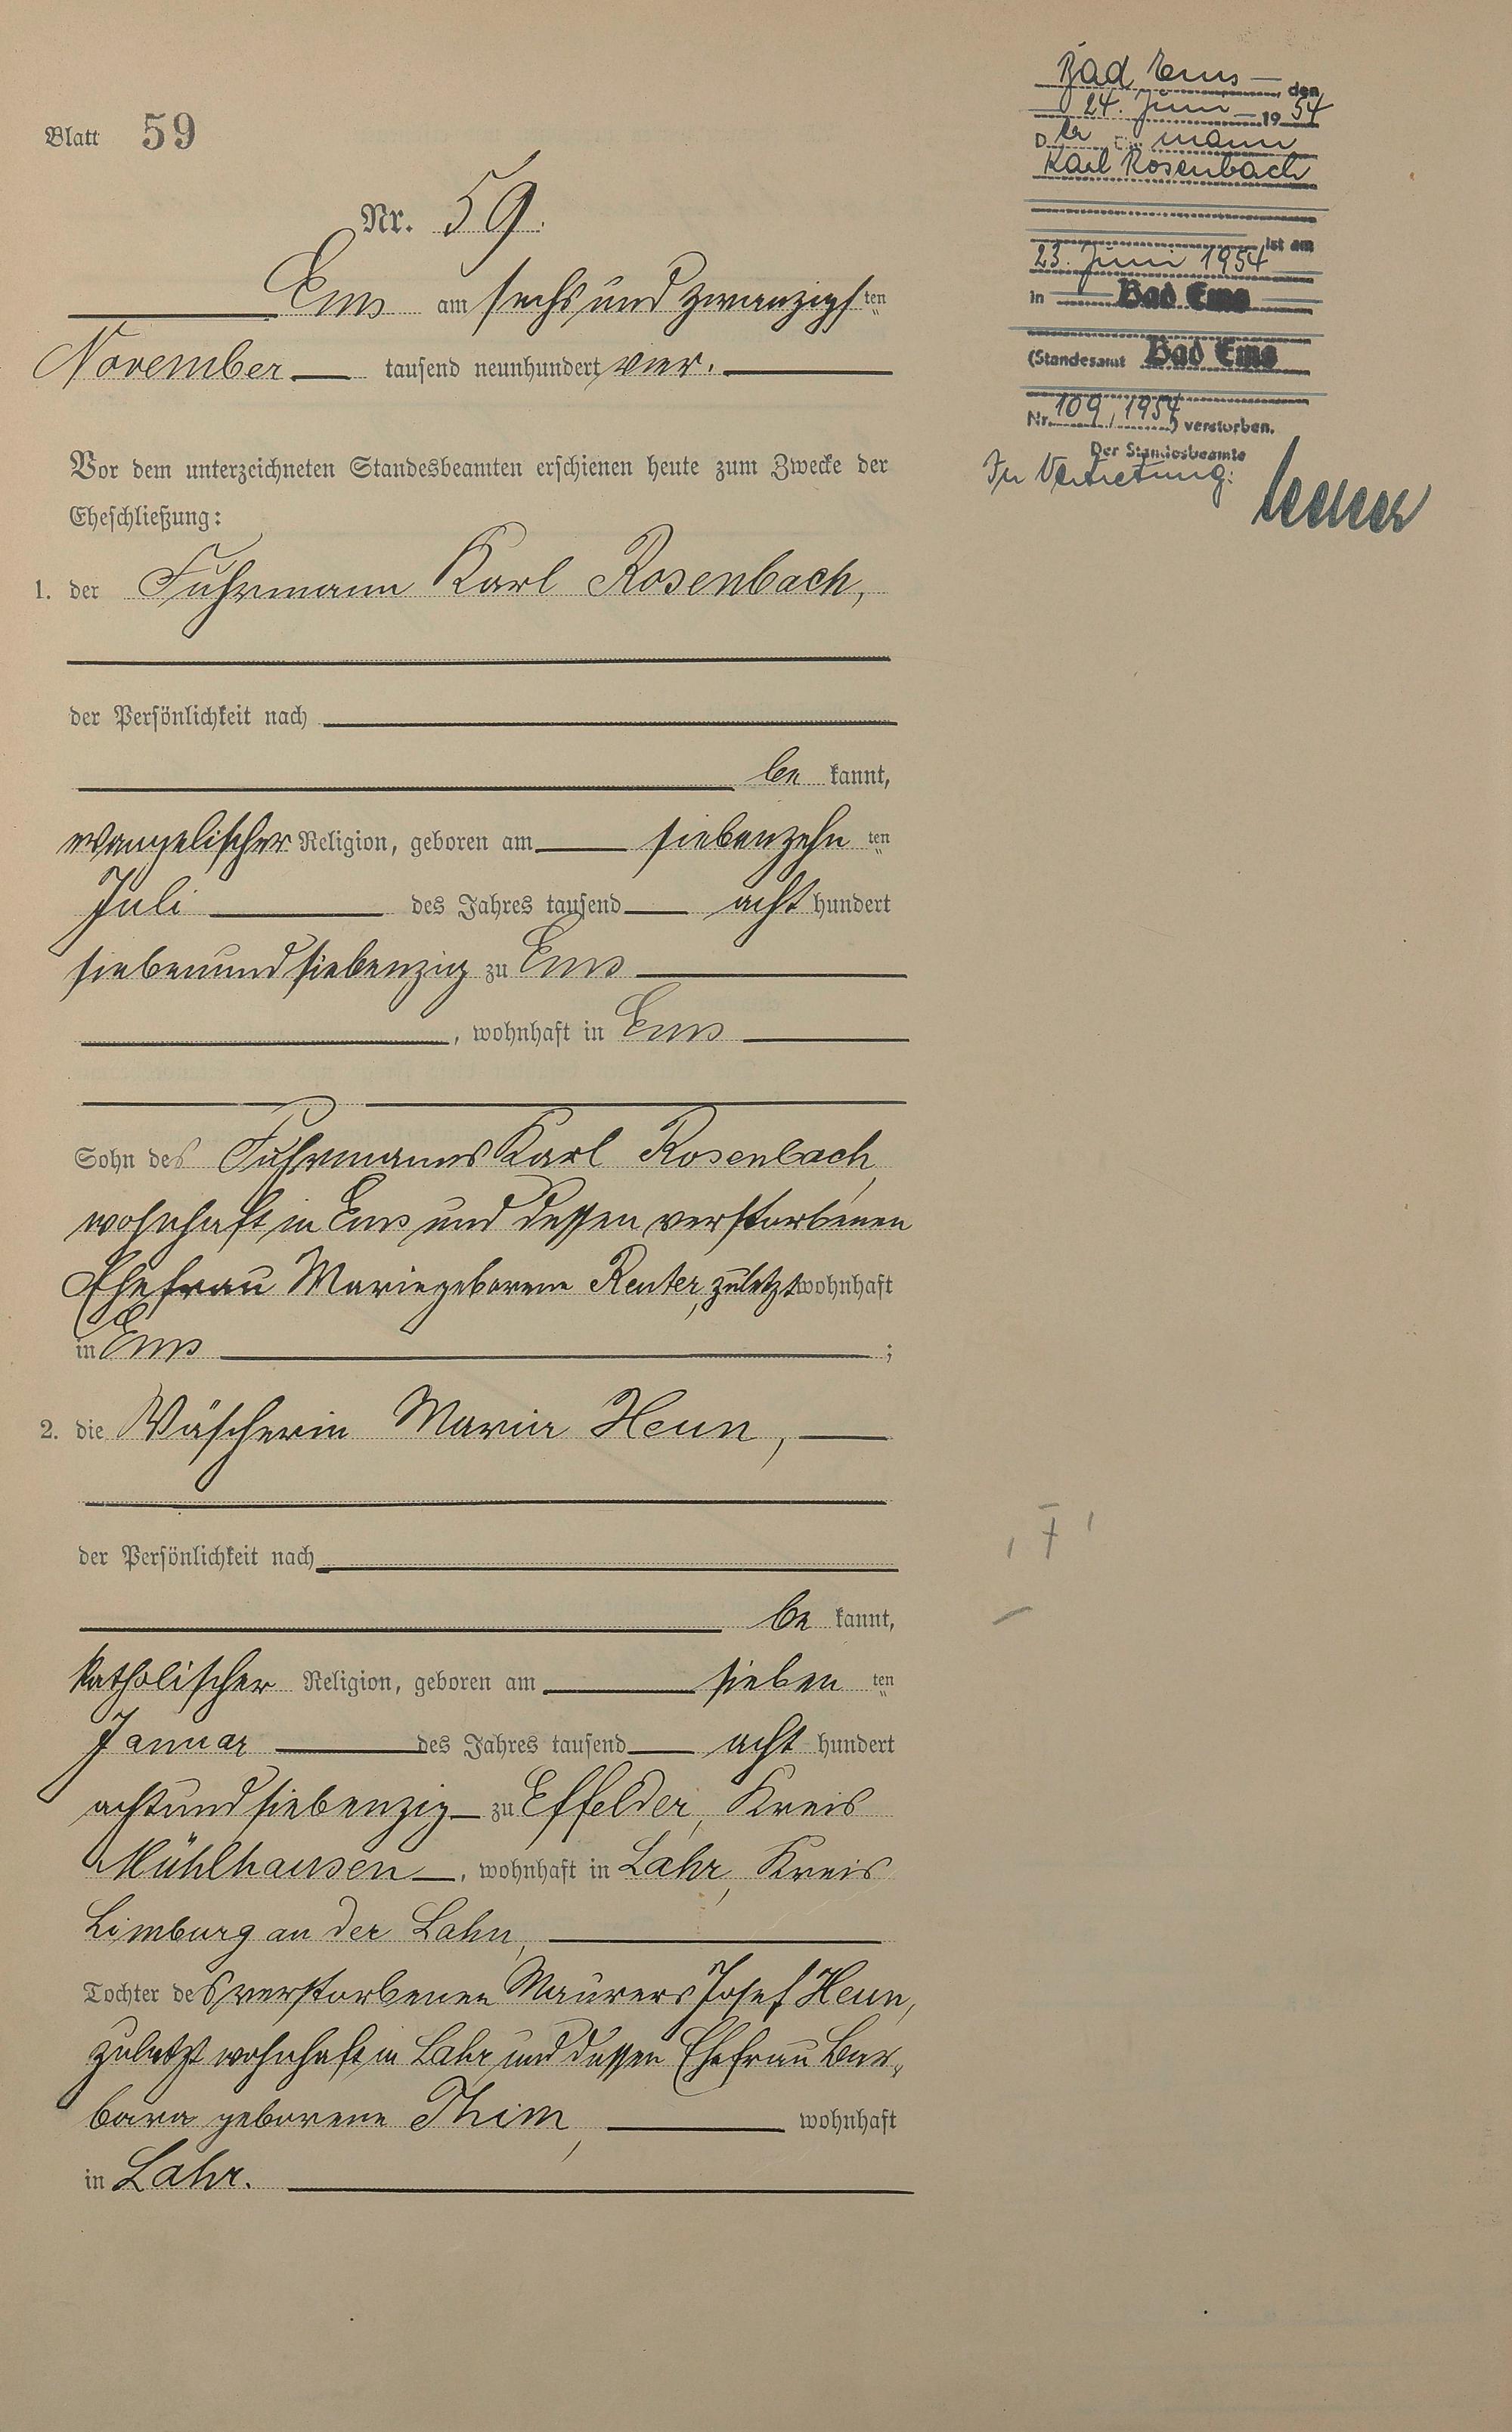 Blatt 59
Nr. 59.
Ems am sechs und zwanzigsten
November tausend neunhundert vier.
Vor dem unterzeichneten Standesbeamten erschienen heute zum Zwecke der
Eheschließung:
1. der Fuhrmann Karl Rosenbach,
der Persönlichkeit nach
be kannt,
evangelischer Religion, geboren am siebenzehn ten
Juli des Jahres tausend acht hundert
siebenundsiebenzig zu Ems
, wohnhaft in Ems
Sohn des Fuhrmanns Karl Rosenbach,
wohnhaft in Ems und dessen verstorbenen
Ehefrau Marie geborene Reuter, zuletzt wohnhaft
in Ems ;
2. die Wäscherin Maria Heun,
der Persönlichkeit nach
be kannt,
katholischer Religion, geboren am sieben ten
Januar des Jahres tausend acht hundert
achtundsiebenzig zu Effelder, Kreis
Mühlhausen, wohnhaft in Lahr, Kreis
Limburg an der Lahn,
Tochter des verstorbenen Maurers Josef Heun,
zuletzt wohnhaft in Lahr und dessen Ehefrau Bar-
bara geborene Thim, wohnhaft
in Lahr.
Bad Ems den
24. Juni 1954
Der Ehemann
Karl Rosenbach
ist am
23. Juni 1954
in Bad Ems
(Standesamt Bad Ems
Nr. 109/1954) verstorben.
Der Standesbeamte
In Vertretung: